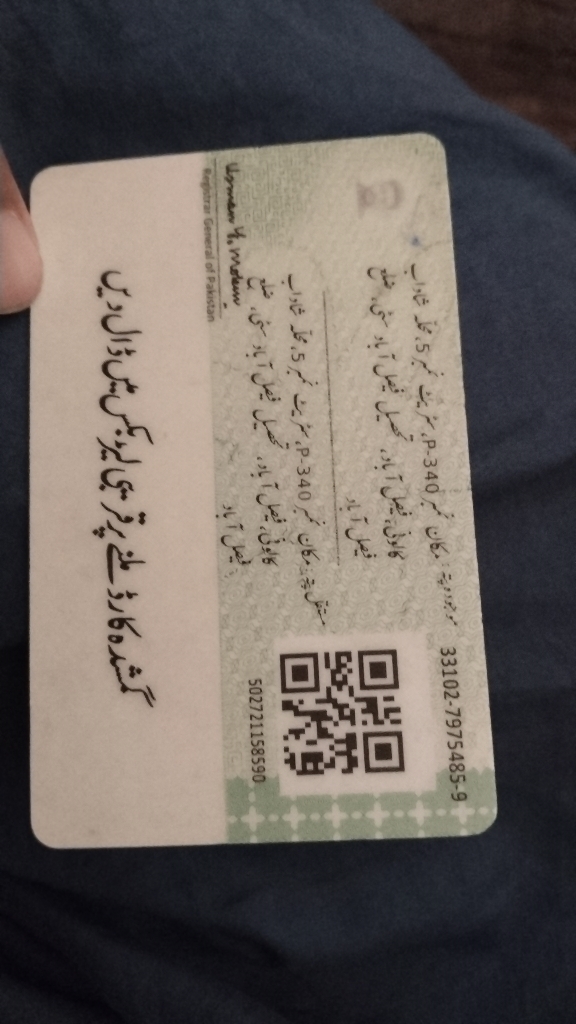 33102-7975485-9
موجودہ پتہ: مکان نمبر P-340، سٹریٹ نمبر 5، محلہ شاداب
کالونی، فیصل آباد، تحصیل فیصل آباد سٹی، ضلع
فیصل آباد
مستقل پتہ: مکان نمبر P-340، سٹریٹ نمبر 5، محلہ شاداب
کالونی، فیصل آباد، تحصیل فیصل آباد سٹی، ضلع
فیصل آباد
502721158590
Usman Y. Mobin
Registrar General of Pakistan
گمشدہ کارڈ ملنے پر قریبی لیٹر بکس میں ڈال دیں